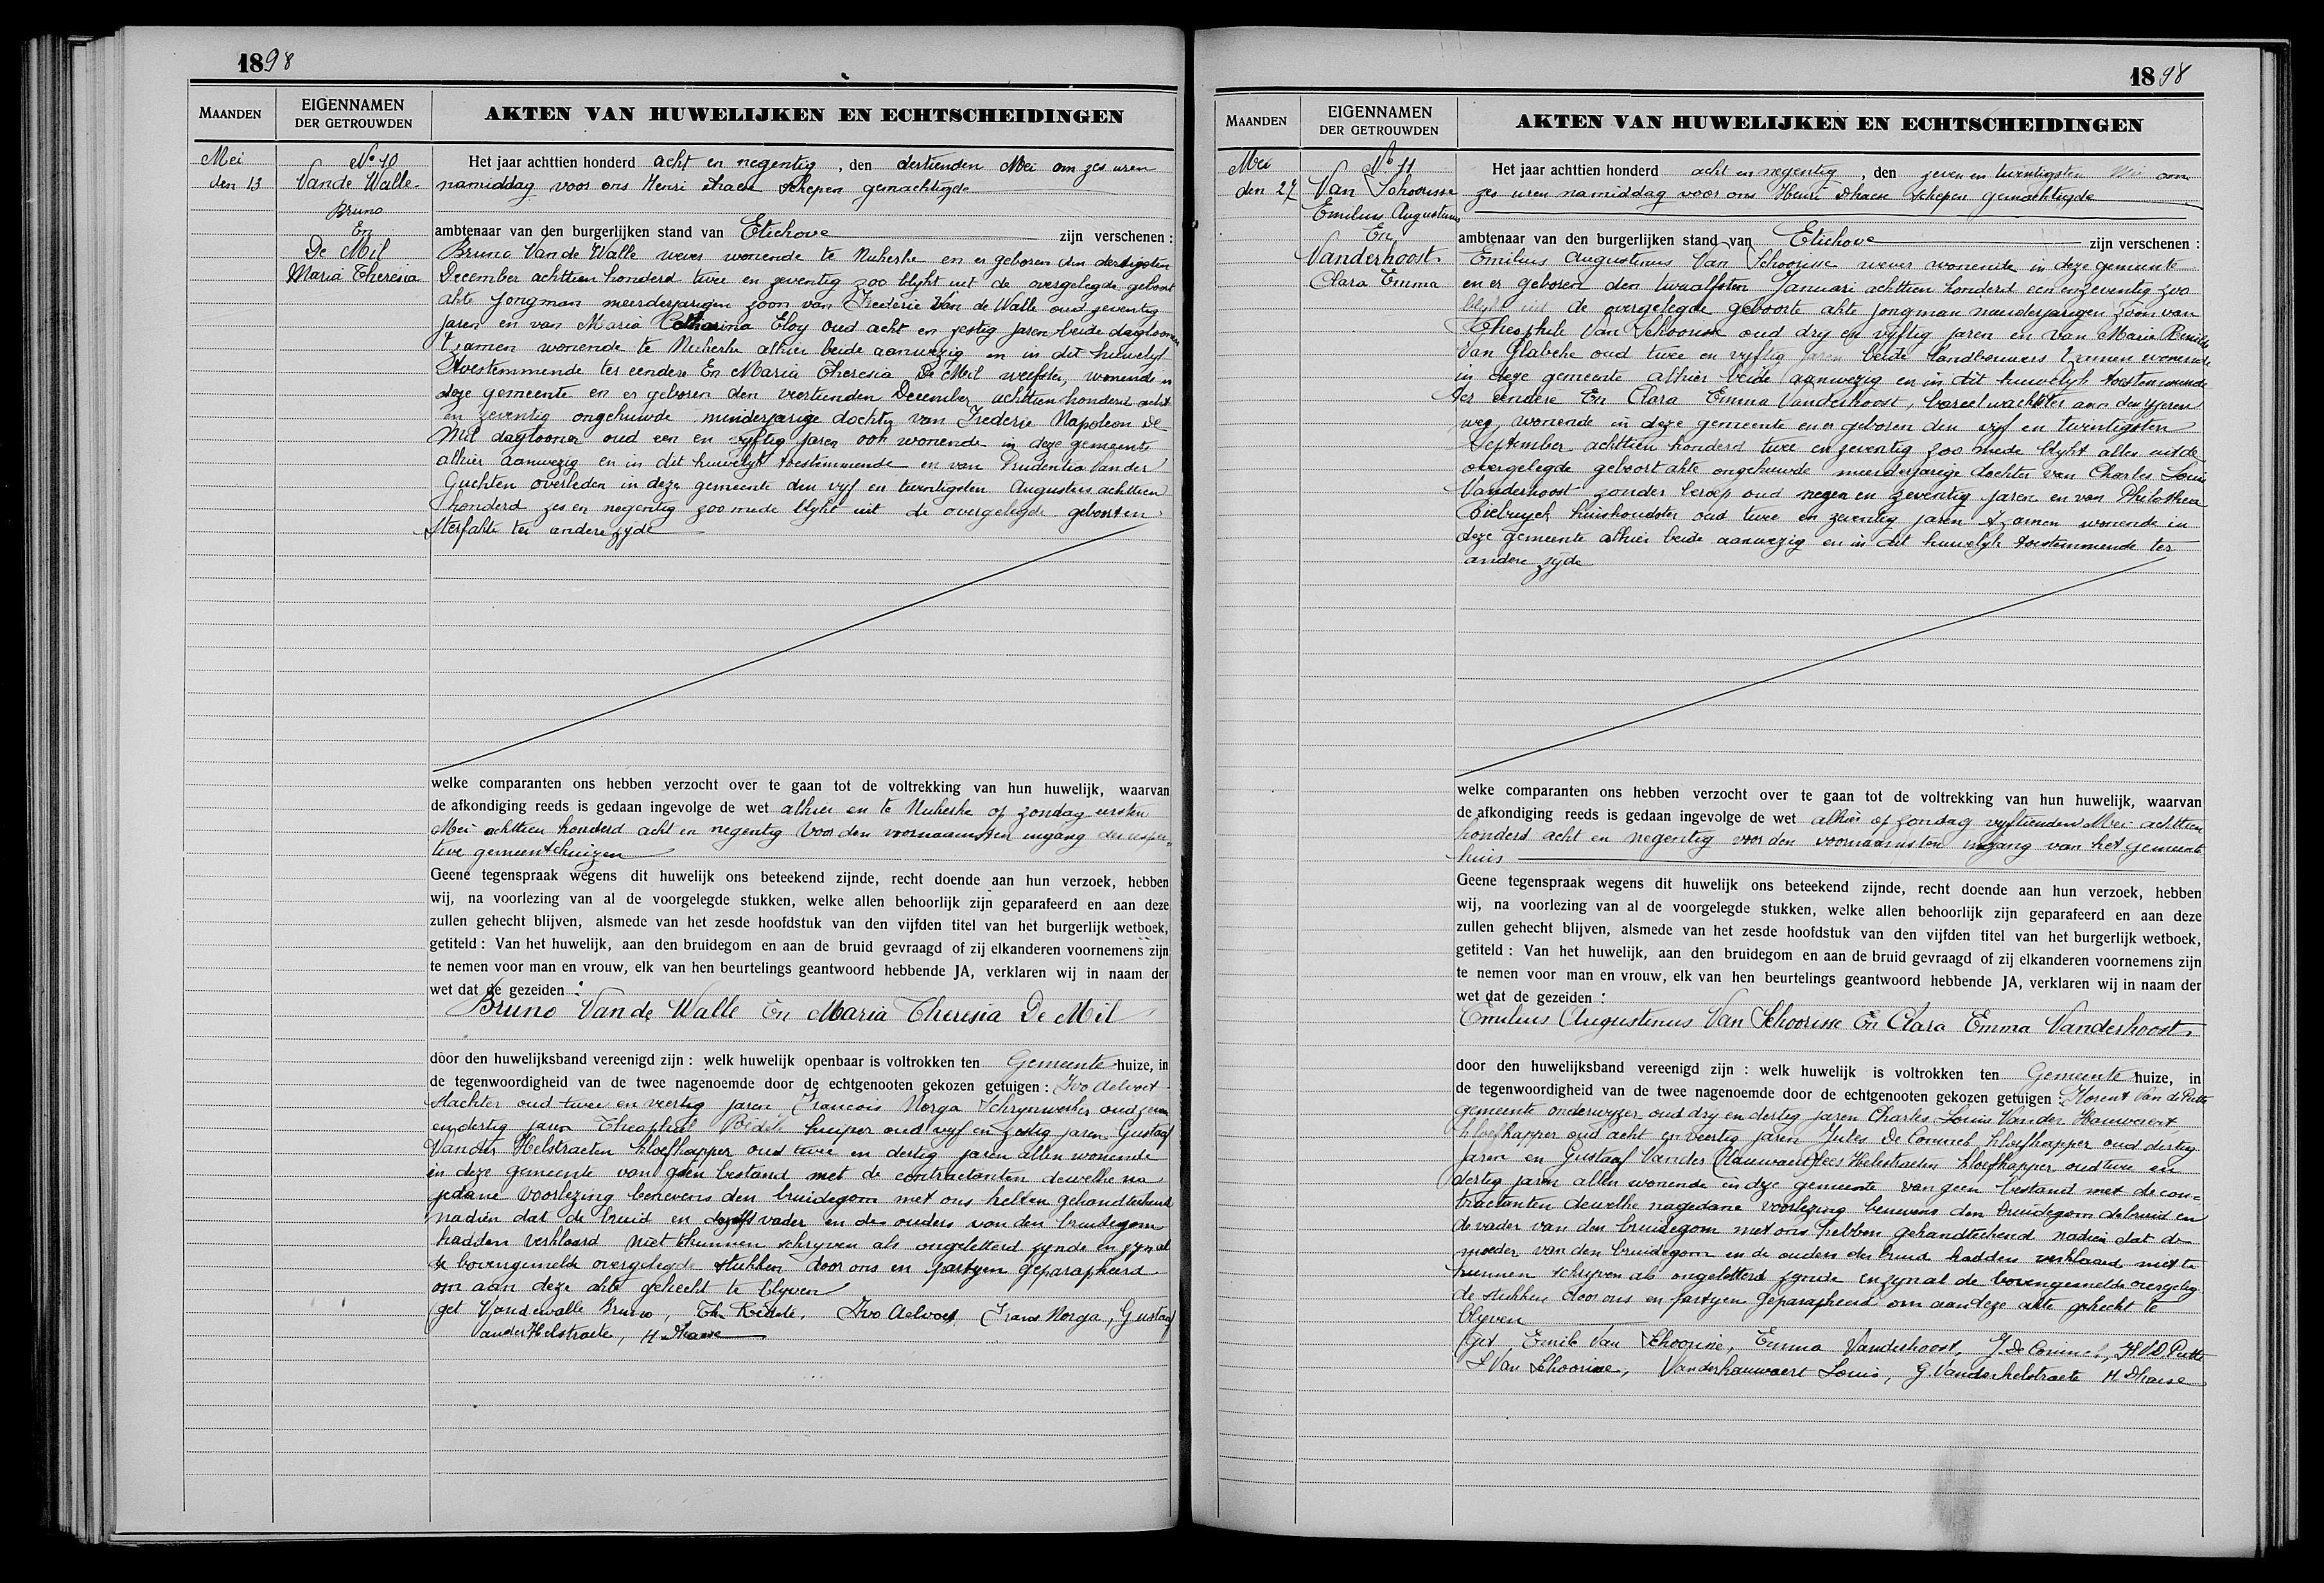 1898
MAANDEN
EIGENNAMEN
DER GETROUWDEN
AKTEN VAN HUWELIJKEN EN ECHTSCHEIDINGEN
Mei
den 13
No 10
Vande Walle
Bruno
En
De Mil
Maria Theresia
Het jaar achttien honderd acht en negentig, den dertienden Mei om zes uren
namiddag voor ons Henri Dhaese schepen gemachtigde
ambtenaar van den burgerlijken stand van Etichove zijn verschenen :
Bruno Van de Walle wever wonende te Nukerke en er geboren den dertigsten
December achttien honderd twee en zeventig zoo blykt uit de overgelegde geboort
akte jongman meerderjarigen zoon van Frederic Van de Walle oud zeventig
jaren en van Maria Catharina Eloy oud acht en zestig jaren beide daglooners
t'zamen wonende te Nukerke alhier beide aanwezig en in dit huwelyk
toestemmende ter eendere En Maria Theresia De Mil weefster, wonende in
deze gemeente en er geboren den veertienden December achttien honderd acht
en zeventig ongehuwde minderjarige dochter van Frederic Napoleon De
Mil daglooner oud een en vyftig jaren ook wonende in deze gemeente
alhier aanwezig en in dit huwelyk toestemmende en van Prudentia Vander
Guchten overleden in deze gemeente den vyf en twintigsten Augustus achttien
honderd zes en negentig zoo mede blykt uit de overgelegde geboorten
sterfakte ter andere zyde
welke comparanten ons hebben verzocht over te gaan tot de voltrekking van hun huwelijk, waarvan
de afkondiging reeds is gedaan ingevolge de wet alhier en te Nukerke op zondag eersten
Mei achttien honderd acht en negentig voor den voornaamsten ingang der respec=
tive gemeentehuizen
Geene tegenspraak wegens dit huwelijk ons beteekend zijnde, recht doende aan hun verzoek, hebben
wij, na voorlezing van al de voorgelegde stukken, welke allen behoorlijk zijn geparafeerd en aan deze
zullen gehecht blijven, alsmede van het zesde hoofdstuk van den vijfden titel van het burgerlijk wetboek,
getiteld : Van het huwelijk, aan den bruidegom en aan de bruid gevraagd of zij elkanderen voornemens zijn
te nemen voor man en vrouw, elk van hen beurtelings geantwoord hebbende JA, verklaren wij in naam der
wet dat de gezeiden :
Bruno Van de Walle En Maria Theresia De Mil
door den huwelijksband vereenigd zijn : welk huwelijk openbaar is voltrokken ten Gemeente huize, in
de tegenwoordigheid van de twee nagenoemde door de echtgenooten gekozen getuigen : Ivo Aelvoet
slachter oud twee en veertig jaren Francois Norga schrynwerker oud zeven
en dertig jaren Theophiel kuiper oud vyf en zestig jaren Gustaaf
Vander Helstraeten kloefkapper oud twee en dertig jaren allen wonende
in deze gemeente van geen bestand met de contractanten dewelke na
gedane voorlezing benevens den bruidegom met ons hebben gehandteekend
nadien dat de bruid en dezelfs vader en de ouders van den bruidegom
hadden verklaard niet te kunnen schryven als ongeletterd zynde en zyn al
de bovengemelde overgelegde stukken door ons en partyen geparapheerd
om aan deze akte gehecht te blyven
(get Vandewalle Bruno, Th. Ivo Aelvoet Frans Norga, Gustaaf
Vander Helstraete, H. Dhaese
1898
MAANDEN
EIGENNAMEN
DER GETROUWDEN
AKTEN VAN HUWELIJKEN EN ECHTSCHEIDINGEN
Mei
den 27
No 11
Van Schoorisse
Emilius Augustinus
En
Vanderhoost
Clara Emma
Het jaar achttien honderd acht en negentig, den zeven en twintigsten Mei om
zes uren namiddag voor ons Henri Dhaese schepen gemachtigde
ambtenaar van den burgerlijken stand van Etichove zijn verschenen :
Emilius Augustinus Van Schoorisse wever wonende in deze gemeente
en er geboren den twaalfsten Januari achttien honderd een en zeventig zoo
blykt uit de overgelegde geboorte akte jongman meerderjarigen zoon van
Theophile Van Schoorisse oud dry en vyftig jaren en van Marie
Van Glabeke oud twee en vyftig jaren beide landbouwers t'zamen wonende
in deze gemeente alhier beide aanwezig en in dit huwelyk toestemmende
ter eendere En Clara Emma Vanderhoost, bareelwachtster aan den yzeren
weg, wonende in deze gemeente en er geboren den vyf en twintigsten
September achttien honderd twee en zeventig zoo mede blykt alles uit de
overgelegde geboort akte ongehuwde meerderjarige dochter van Charles Louis
Vanderhoost zonder beroep oud negen en zeventig jaren en van Philothea
huishoudster oud twee en zeventig jaren t'zamen wonende in
deze gemeente alhier beide aanwezig en in dit huwelyk toestemmende ter
andere zyde
welke comparanten ons hebben verzocht over te gaan tot de voltrekking van hun huwelijk, waarvan
de afkondiging reeds is gedaan ingevolge de wet alhier op zondag vyftienden Mei achttien
honderd acht en negentig voor den voornaamsten ingang van het gemeente
huis
Geene tegenspraak wegens dit huwelijk ons beteekend zijnde, recht doende aan hun verzoek, hebben
wij, na voorlezing van al de voorgelegde stukken, welke allen behoorlijk zijn geparafeerd en aan deze
zullen gehecht blijven, alsmede van het zesde hoofdstuk van den vijfden titel van het burgerlijk wetboek,
getiteld : Van het huwelijk, aan den bruidegom en aan de bruid gevraagd of zij elkanderen voornemens zijn
te nemen voor man en vrouw, elk van hen beurtelings geantwoord hebbende JA, verklaren wij in naam der
wet dat de gezeiden :
Emilius Augustinus Van Schoorisse En Clara Emma Vanderhoost
door den huwelijksband vereenigd zijn : welk huwelijk is voltrokken ten Gemeente huize, in
de tegenwoordigheid van de twee nagenoemde door de echtgenooten gekozen getuigen : Florent Van de Putte
gemeente onderwyzer oud dry en dertig jaren Charles Louis Vander Hauwaert
kloefkapper oud acht en veertig jaren Jules De Coninck kloefkapper oud dertig
jaren en Gustaaf Vander (Hauwaert) lees Helstraeten kloefkapper oud twee en
dertig jaren allen wonende in deze gemeente van geen bestand met de con=
tractanten dewelke nagedane voorlezing benevens den bruidegom de bruid en
de vader van den bruidegom met ons hebben gehandteekend nadien dat de
moeder van den bruidegom en de ouders der bruid hadden verklaard niet te
kunnen schryven als ongeletterd zynde en zyn al de bovengemelde overgeleg
de stukken door ons en partyen geparapheerd om aan deze akte gehecht te
blyven
(get Emile Van Schoorisse, Emma Vanderhoost, J. De Coninck, Fl V D Putte
Van Schoorisse, Vanderhauwaert Louis, G. Vanderhelstraete H. Dhaese